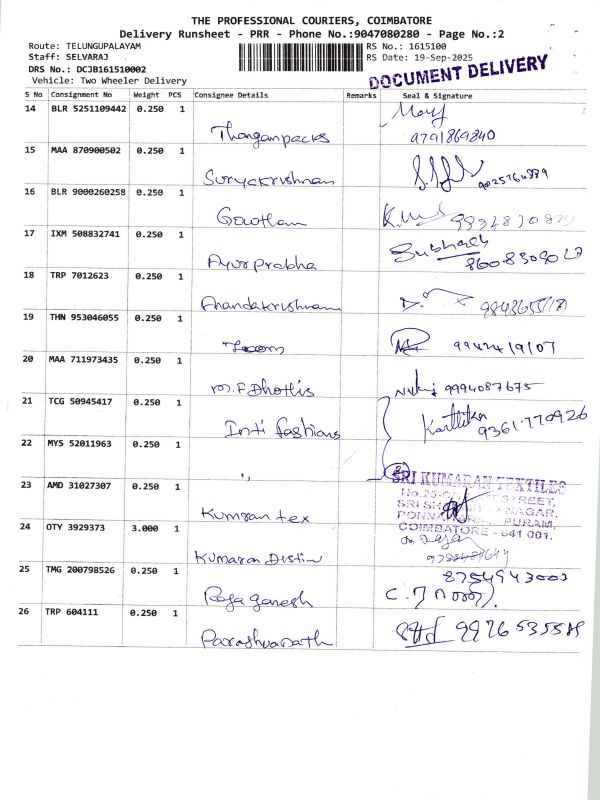 THE PROFESSIONAL COURIERS, COIMBATORE
Delivery Runsheet - PRR - Phone No.:9047080280 - Page No.:2
Route: TELUNGUPALAYAM
Staff: SELVARAJ
DRS No.: DCJB161510002
Vehicle: Two Wheeler Delivery
RS No.: 1615100
RS Date: 19-Sep-2025
DOCUMENT DELIVERY
S No Consignment No Weight PCS Consignee Details Remarks Seal & Signature
14 BLR 5251109442 0.250 1 Thanganpacks 9791869840
15 MAA 870900502 0.250 1 Suryakrishnan
16 BLR 9000260258 0.250 1 Gowtham
17 IXM 508832741 0.250 1 Ayurprabha Subhash
18 TRP 7012623 0.250 1 Anandakrishnan
19 THN 953046055 0.250 1
20 MAA 711973435 0.250 1 M.F.Dhotis 9994087675
21 TCG 50945417 0.250 1 Inti fashions Karthika 9361770926
22 MYS 52011963 0.250 1 ,,
23 AMD 31027307 0.250 1 Kumaran tex
SRI KUMARAN TEXTILES
COIMBATORE - 641 001.
24 OTY 3929373 3.000 1 Kumaran
25 TMG 200798526 0.250 1 Raja ganesh 8754943003
26 TRP 604111 0.250 1 Parashvanath